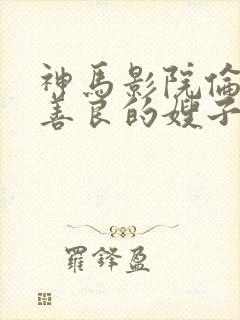 神馬影院倫
善良的嫂子
羅鋒盈